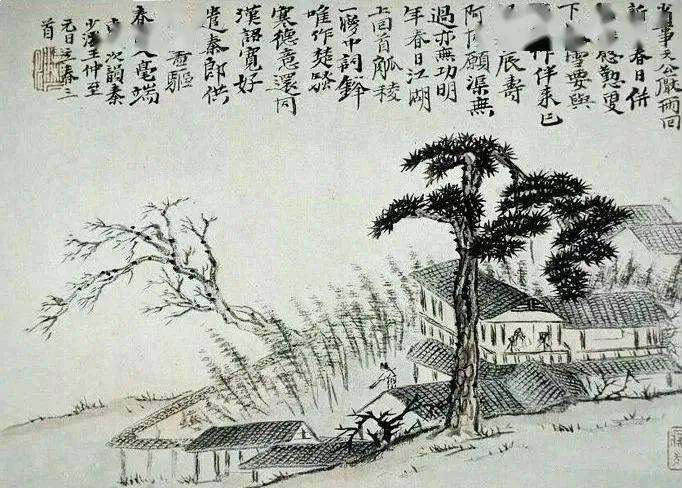 省事天公厭兩回
新春日併
慇懃更
下雪要與
作伴來已
辰壽
阿願渠無
過亦無功明
年春日江湖
上回首觚稜
一夢中詞鋒
唯作楚騷
寒德意還同
漢詔寬好
遣秦郎供
盡驅
春入毫端
次韻秦
少游王仲至
元日立春三
首